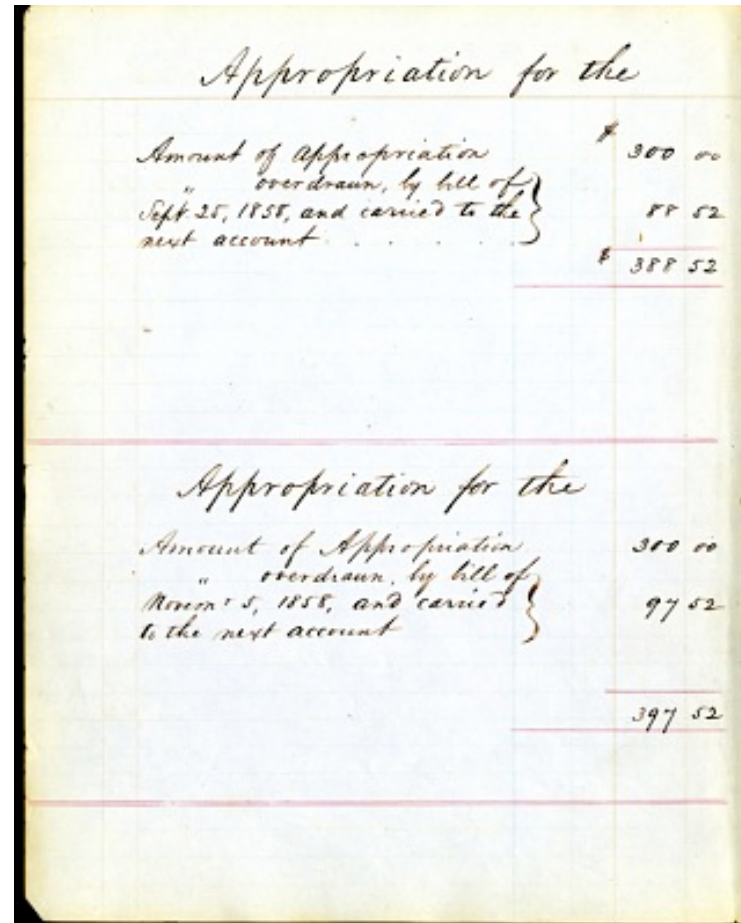 Appropriation for the
Amount of appropriation $ 300 00
" overdrawn, by bill of
Sept. 25, 1858, and carried to the 88 52
next account . . . . .
$ 388 52
Appropriation for the
Amount of Appropriation 300 00
" overdrawn, by bill of
Novemr 5, 1858, and carried 97 52
to the next account
397 52